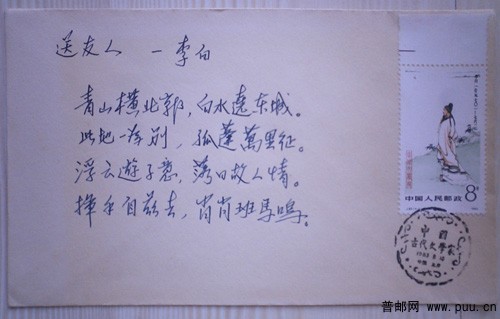 送友人 —李白
青山横北郭，白水遶东城。
此地一为别，孤蓬萬里征。
浮云遊子意，落日故人情。
挥手自兹去，肖肖班馬鸣。
中国人民邮政 8分
中国
古代文学家
1983.8.10
普邮网 www.puu.cn